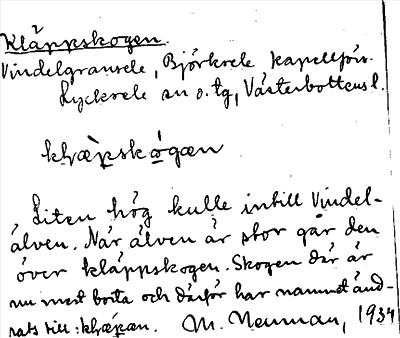 Kläppskogen.
Vindelgransele, Björksele kapellförs.
Lycksele sn o. tg, Västerbottens l.
kḷæ̀pskó̱gæn
Liten hög kulle intill Vindel-
älven. När älven är stor går den
över kläppskogen. Skogen där är
nu mest borta och därför har namnet änd-
rats till: kḷæpan. M. Neuman, 1934